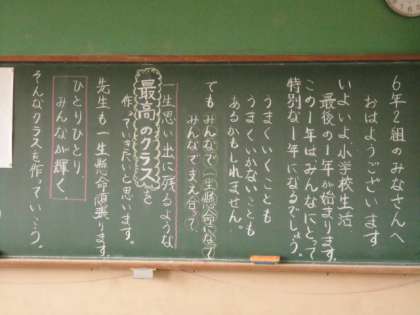 6年2組のみなさんへ
おはようございます
いよいよ小学校生活
最後の1年が始まります。
この1年はみんなにとって
特別な1年になるでしょう。
うまくいくことも
うまくいかないことも
あるかもしれません。
でもみんなで一生懸命になって
みんなで支え合って
一生思い出に残るような
最高のクラスを
作っていきたいと思います。
先生も一生懸命頑張ります。
ひとりひとり
みんなが輝く。
そんなクラスを作っていこう。